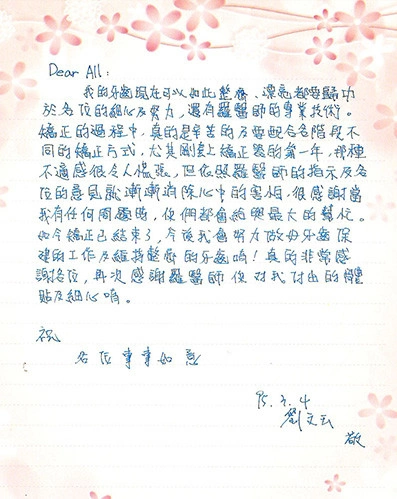 Dear All:
我的牙齒現在可以如此整齊、漂亮都要歸功
於各位的細心及努力，還有羅醫師的專業技術。
矯正的過程中，真的是辛苦的及要配合各階段不
同的矯正方式，尤其剛套上矯正器的第一年，那種
不適感很令人慌張，但依照羅醫師的指示及各
位的意見就漸漸消除心中的害怕，很感謝當
我有任何問題時，你們都會給與最大的幫忙。
如今矯正已結束了，今後我會努力做好牙齒保
健的工作及維持整齊的牙齒喲！真的非常感
謝各位，再次感謝羅醫師你對我付出的體
貼及細心唷。
祝
各位事事如意
95.7.4
劉文玉
敬